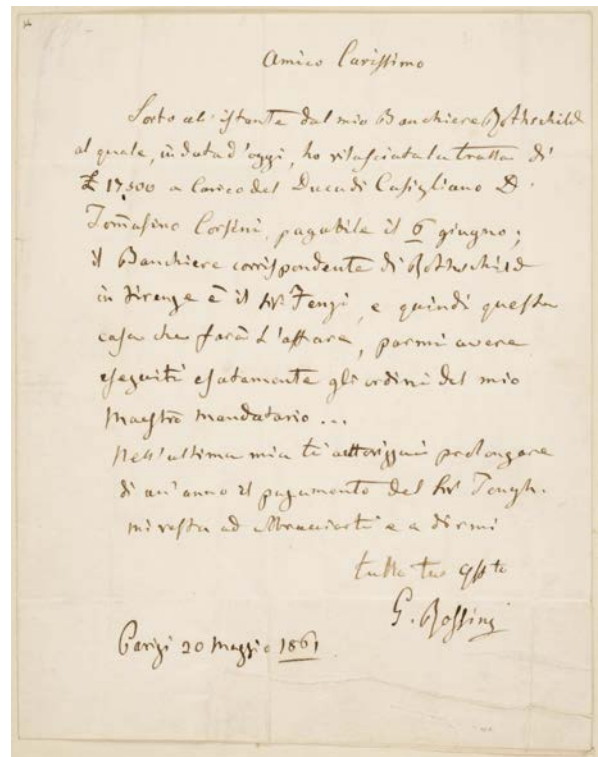 Amico Carissimo
Sorto all'istante dal mio Banchiere Rothschild
al quale, in data d'oggi, ho rilasciata la tratta di
£ 17,500 a Carico del Duca di Casigliano D.
Tommasino Corsini, pagabile il 6 giugno;
il Banchiere corrispondente di Rothschild
in Firenze è il Sigr Fenzi, e quindi questa
casa che farà l'affare, parmi avere
eseguiti esatamente gli ordini del mio
Maestro mandatario ...
Nell'ultima mia ti autorizzai prolongare
di un'anno il pagamento del Sigr
mi resta ad abbracciarti e a dirmi
tutto tuo
G. Rossini
Parigi 20 Maggio 1861